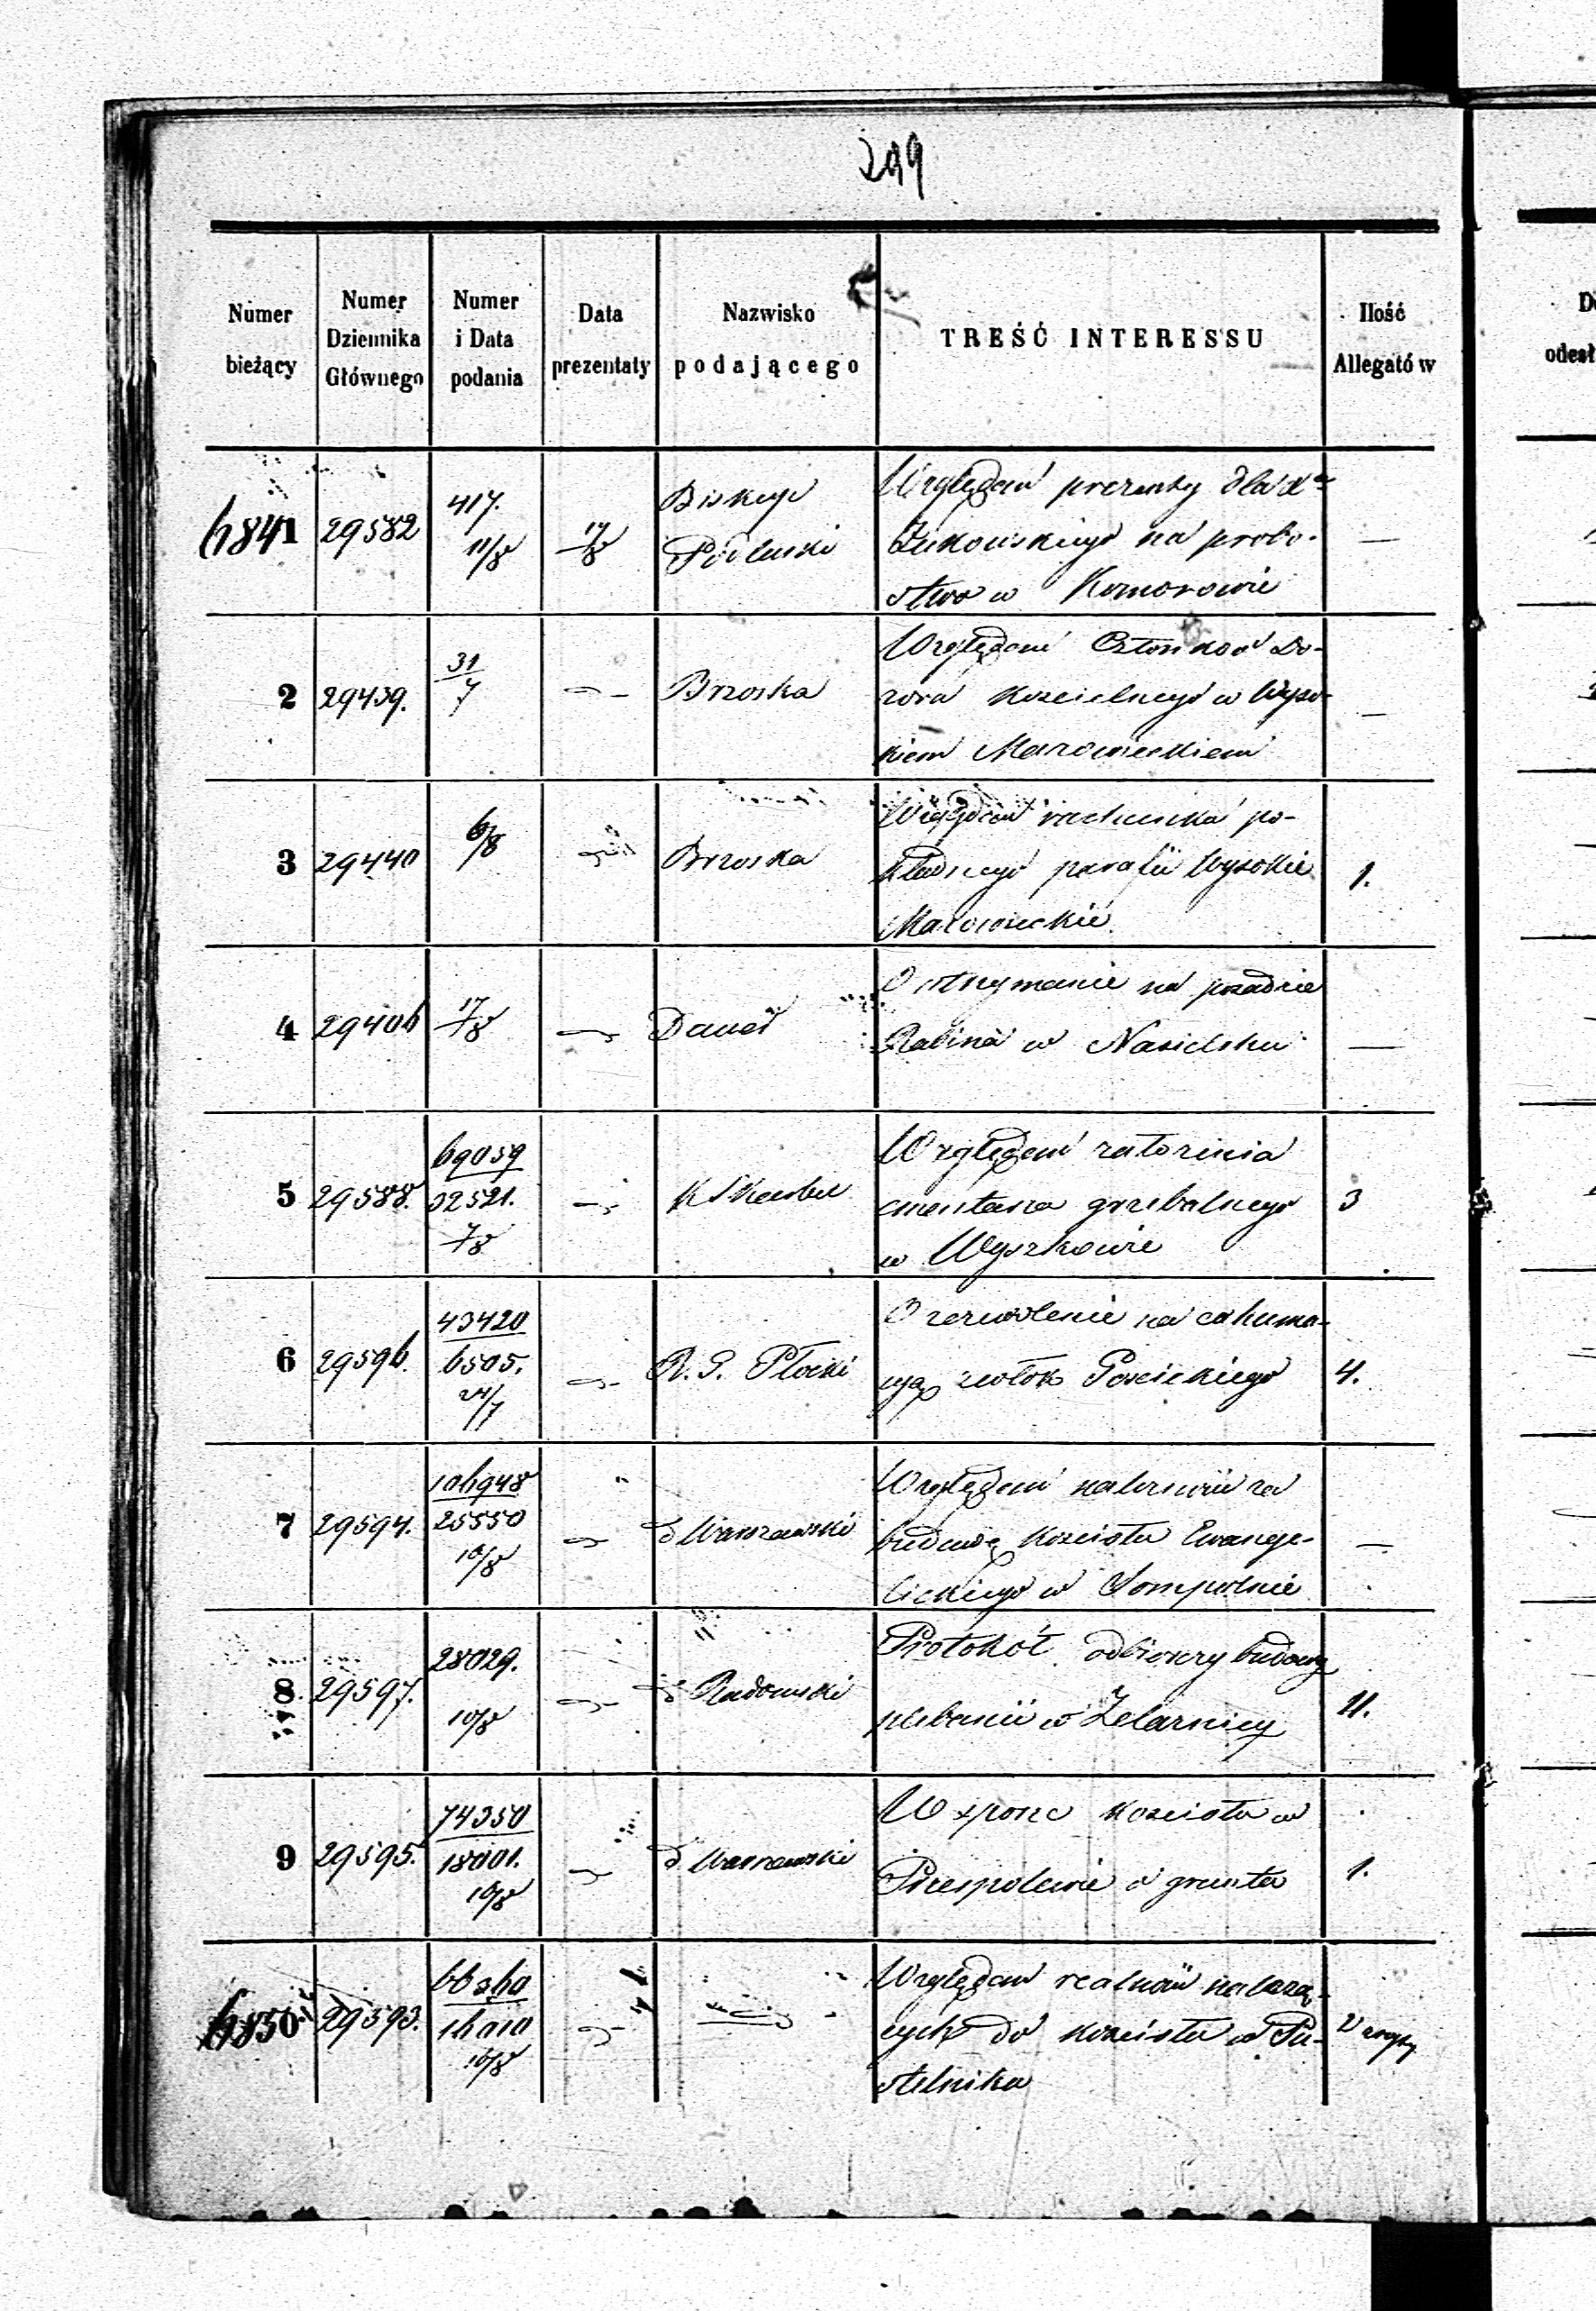 299
Numer bieżący
Numer Dziennika Głównego
Numer i Data podania
Data prezentaty
Nazwisko podającego
TREŚĆ INTERESSU
Ilość Allegatów
6841 29582 417. 11/8 17/8 Biskup Podlaski
Względem prezenty dla X
Żukowskiego na probo-
stwo w Komorowie —
2 29439. 31/7 Brzoska
Względem Członków Do-
zoru kościelnego w Wyso-
kiem Mazowieckiem —
3 29440 6/8 Brzoska
Względem rachunku po-
kładnego parafii Wysokie
Mazowieckie. 1.
4 29406 17/8
O utrzymanie na posadzie
Rabina w Nasielsku —
5 29588. 69059 32521. 7/8
Względem założenia
cmentarza grzebalnego
w Wyszkowie 3
6 29596. 43420 6505. 24/7 R. G. Płocki
O zezwolenie na exhuma-
cyą zwłok Gościckiego 4.
7 29594. 106948 25550 10/8 d Warszawski
Względem należności za
budowę kościoła Ewange-
lickiego w Sompolnie —
8. 29597. 28029. 10/8 d Radomski
Protokół odbiorczy budowy
plebanii w Żelaznicy 11.
9 29595. 74350 18001. 10/8 d. Warszawski
W sporze kościoła w
Przespolewie o grunta 1.
6850 29593. 16010 10/8
Względem realności należą-
cych do kościoła w Pu-
stelniku 2